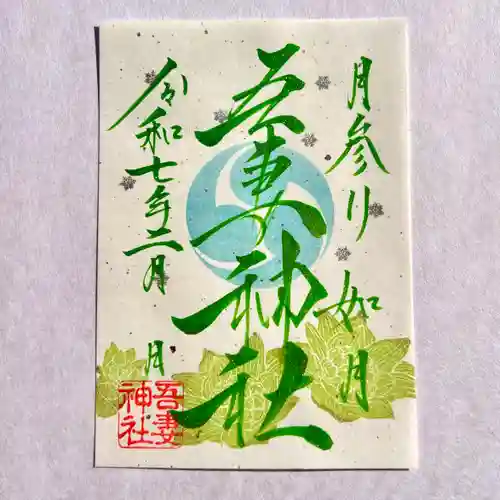 月参り 如月
吾妻神社
令和七年二月
月
吾妻
神社